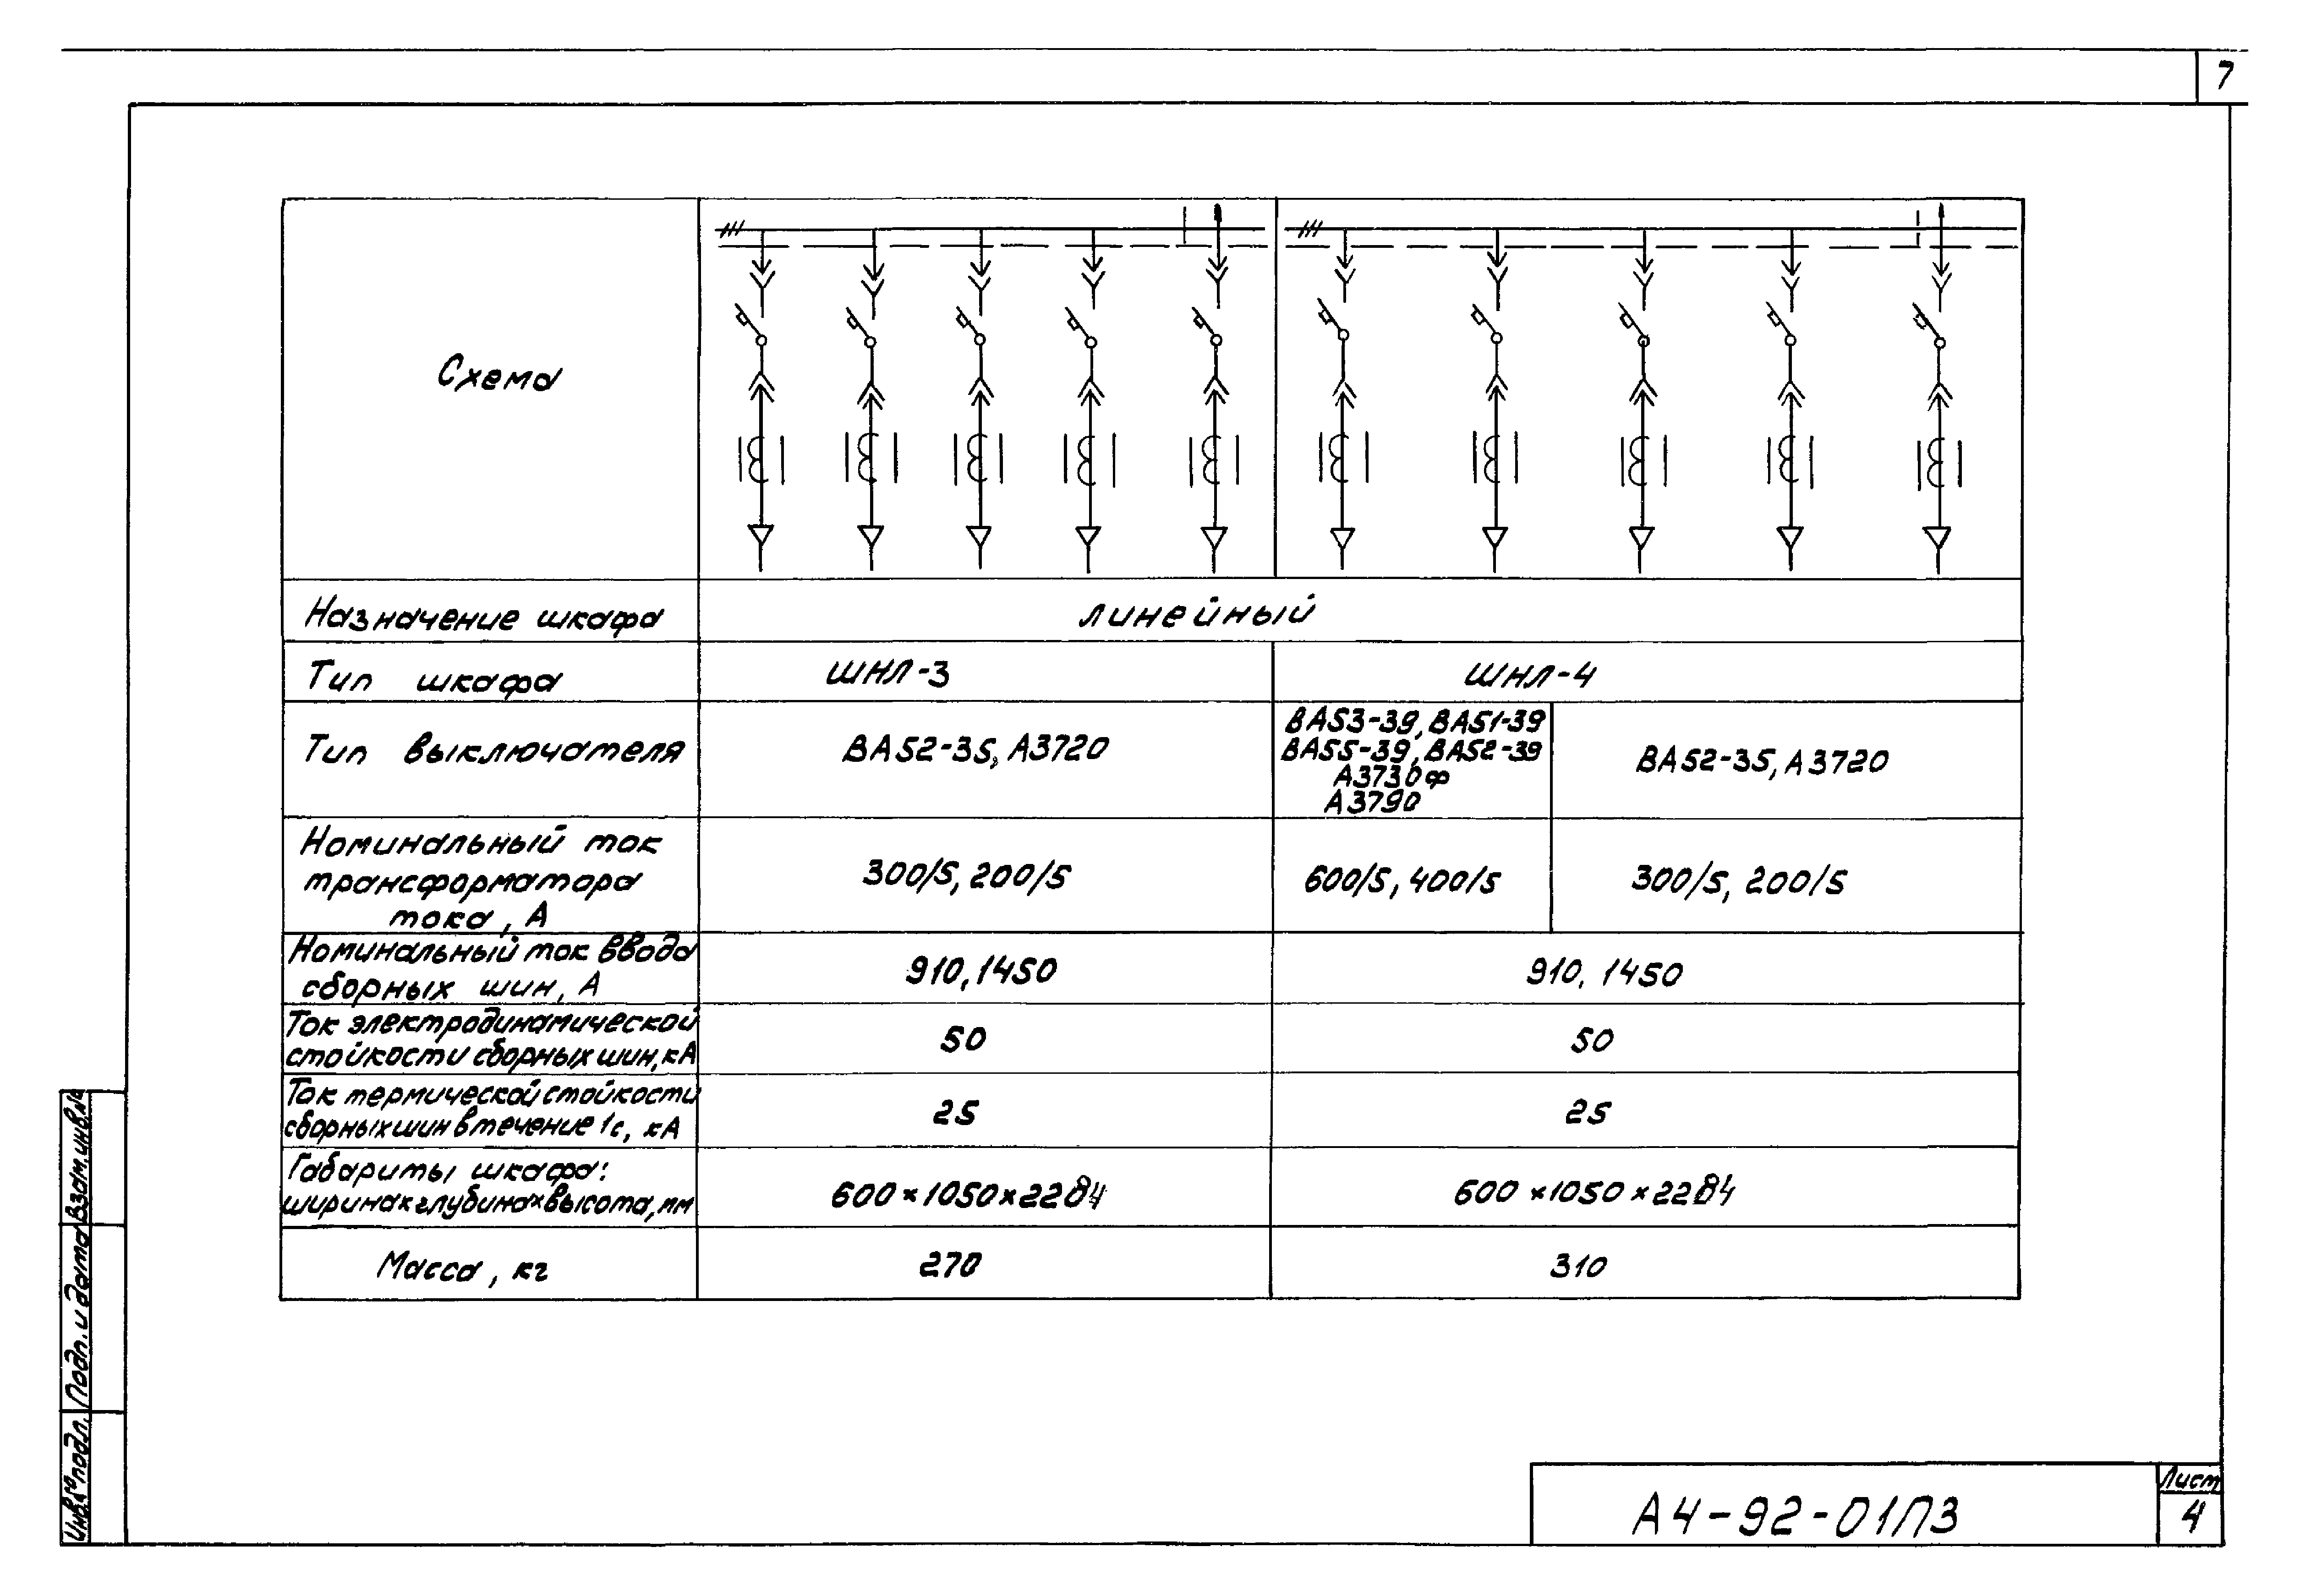 7
Схема
Назначение шкафа
линейный
Тип шкафа
ШНЛ-3
ШНЛ-4
Тип выключателя
ВА52-35, А3720
ВА53-39, ВА51-39
ВА55-39, ВА52-39
А3730ф
А3790
ВА52-35, А3720
Номинальный ток
трансформатора
тока, А
300/5, 200/5
600/5, 400/5
300/5, 200/5
Номинальный ток ввода
сборных шин, А
910, 1450
910, 1450
Ток электродинамической
стойкости сборных шин, кА
50
50
Ток термической стойкости
сборных шин в течение 1с, кА
25
25
Габариты шкафа:
ширина×глубина×высота, мм
600×1050×2284
600×1050×2284
Масса, кг
270
310
Взам. инв. №
Подп. и дата
Инв. № подл.
А4-92-01ПЗ
Лист
4